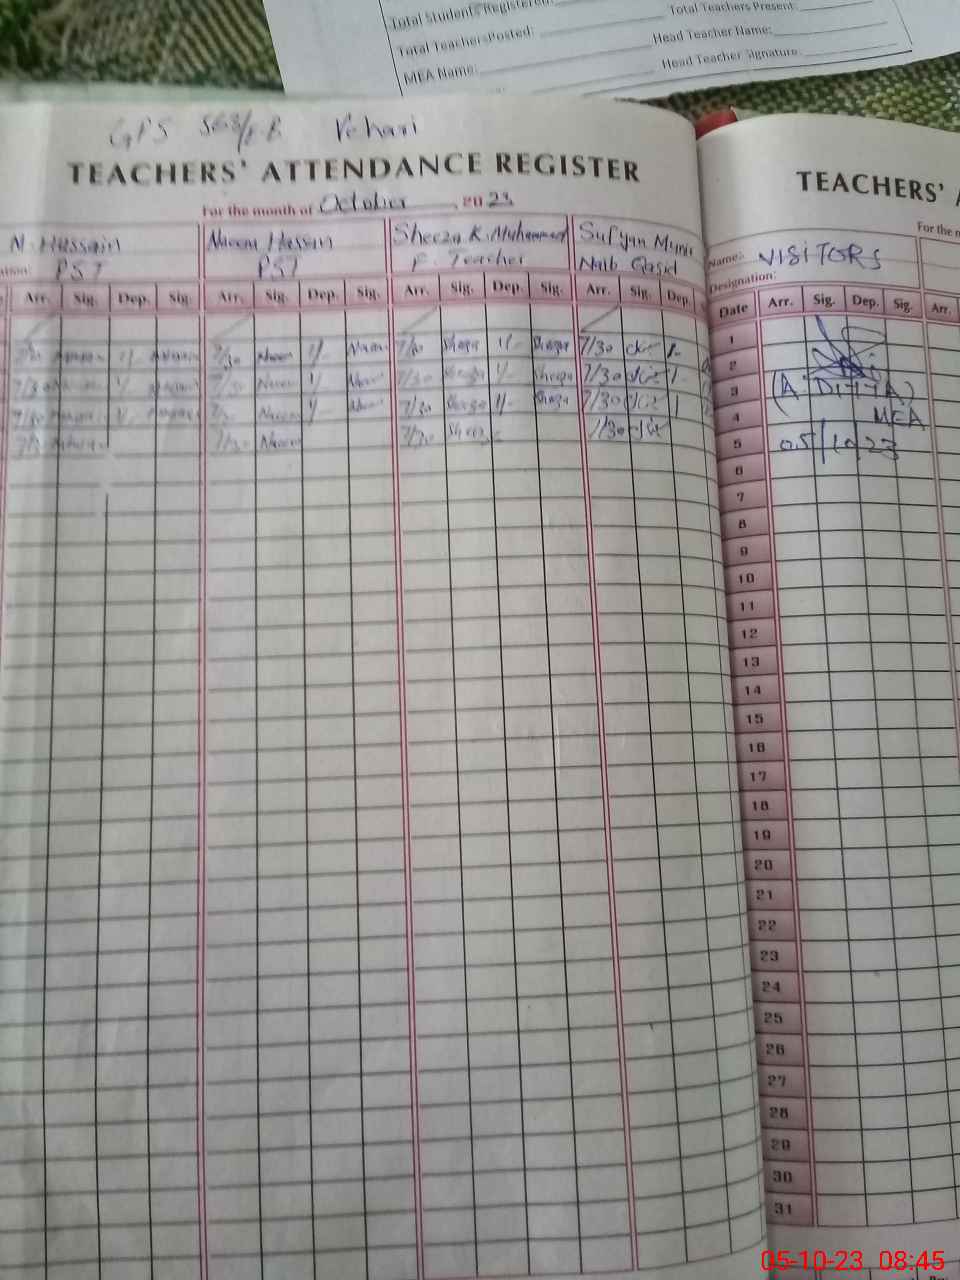 Total Students Registered: Total Teachers Present:
Total TeachersPosted: Head Teacher Name:
MEA Name: Head Teacher Signature:
GPS 363/E.B Vehari
TEACHERS' ATTENDANCE REGISTER
For the month of October, 20 23
M. Hussain Naeem Hassan Sheeza K. Muhammad Sufyan Munir
PST PST P. Teacher Naib Qasid
Arr. Sig. Dep. Sig. Arr. Sig. Dep. Sig. Arr. Sig. Dep. Sig. Arr. Sig. Dep.
7/30 Naeem 1/- Naeem 7/30 Sheeza 1/- Sheeza 7/30
7/30 7/30 Naeem 1/ Naeem 7/30 Sheeza 1/ Sheeza 7/30
7/30 Naeem 1/- Naeem 7/30 Sheeza 1/- Sheeza 7/30
7/30 Naeem 7/30 Sheeza 7/30
TEACHERS'
For the m
Name: VISITORS
Designation:
Date Arr. Sig. Dep. Sig. Arr.
1
2
3 (A DITTA)
4 MEA
5 05/10/23
6
7
8
9
10
11
12
13
14
15
16
17
18
19
20
21
22
23
24
25
26
27
28
29
30
31
05-10-23 08:45